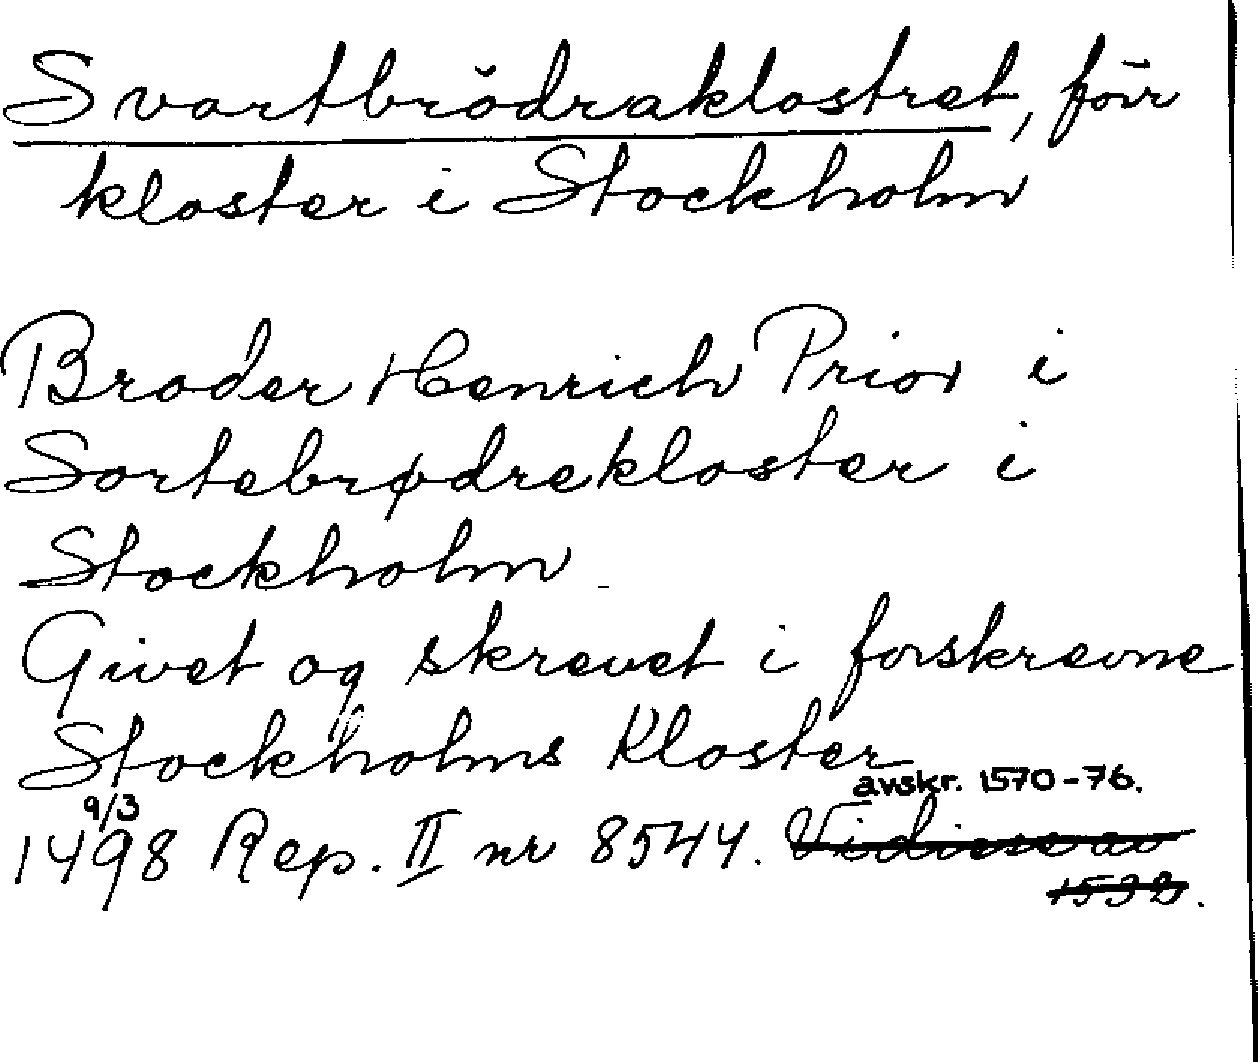 Svartbrödraklostret, förr
kloster i Stockholm
Broder Henrich Prior i
Sortebrødrekloster i
Stockholm
Givet og skrevet i forskrevne
Stockholms Kloster
avskr. 1570-76.
9/3
1498 Rep. II nr 8544. Vidisse av
1532.